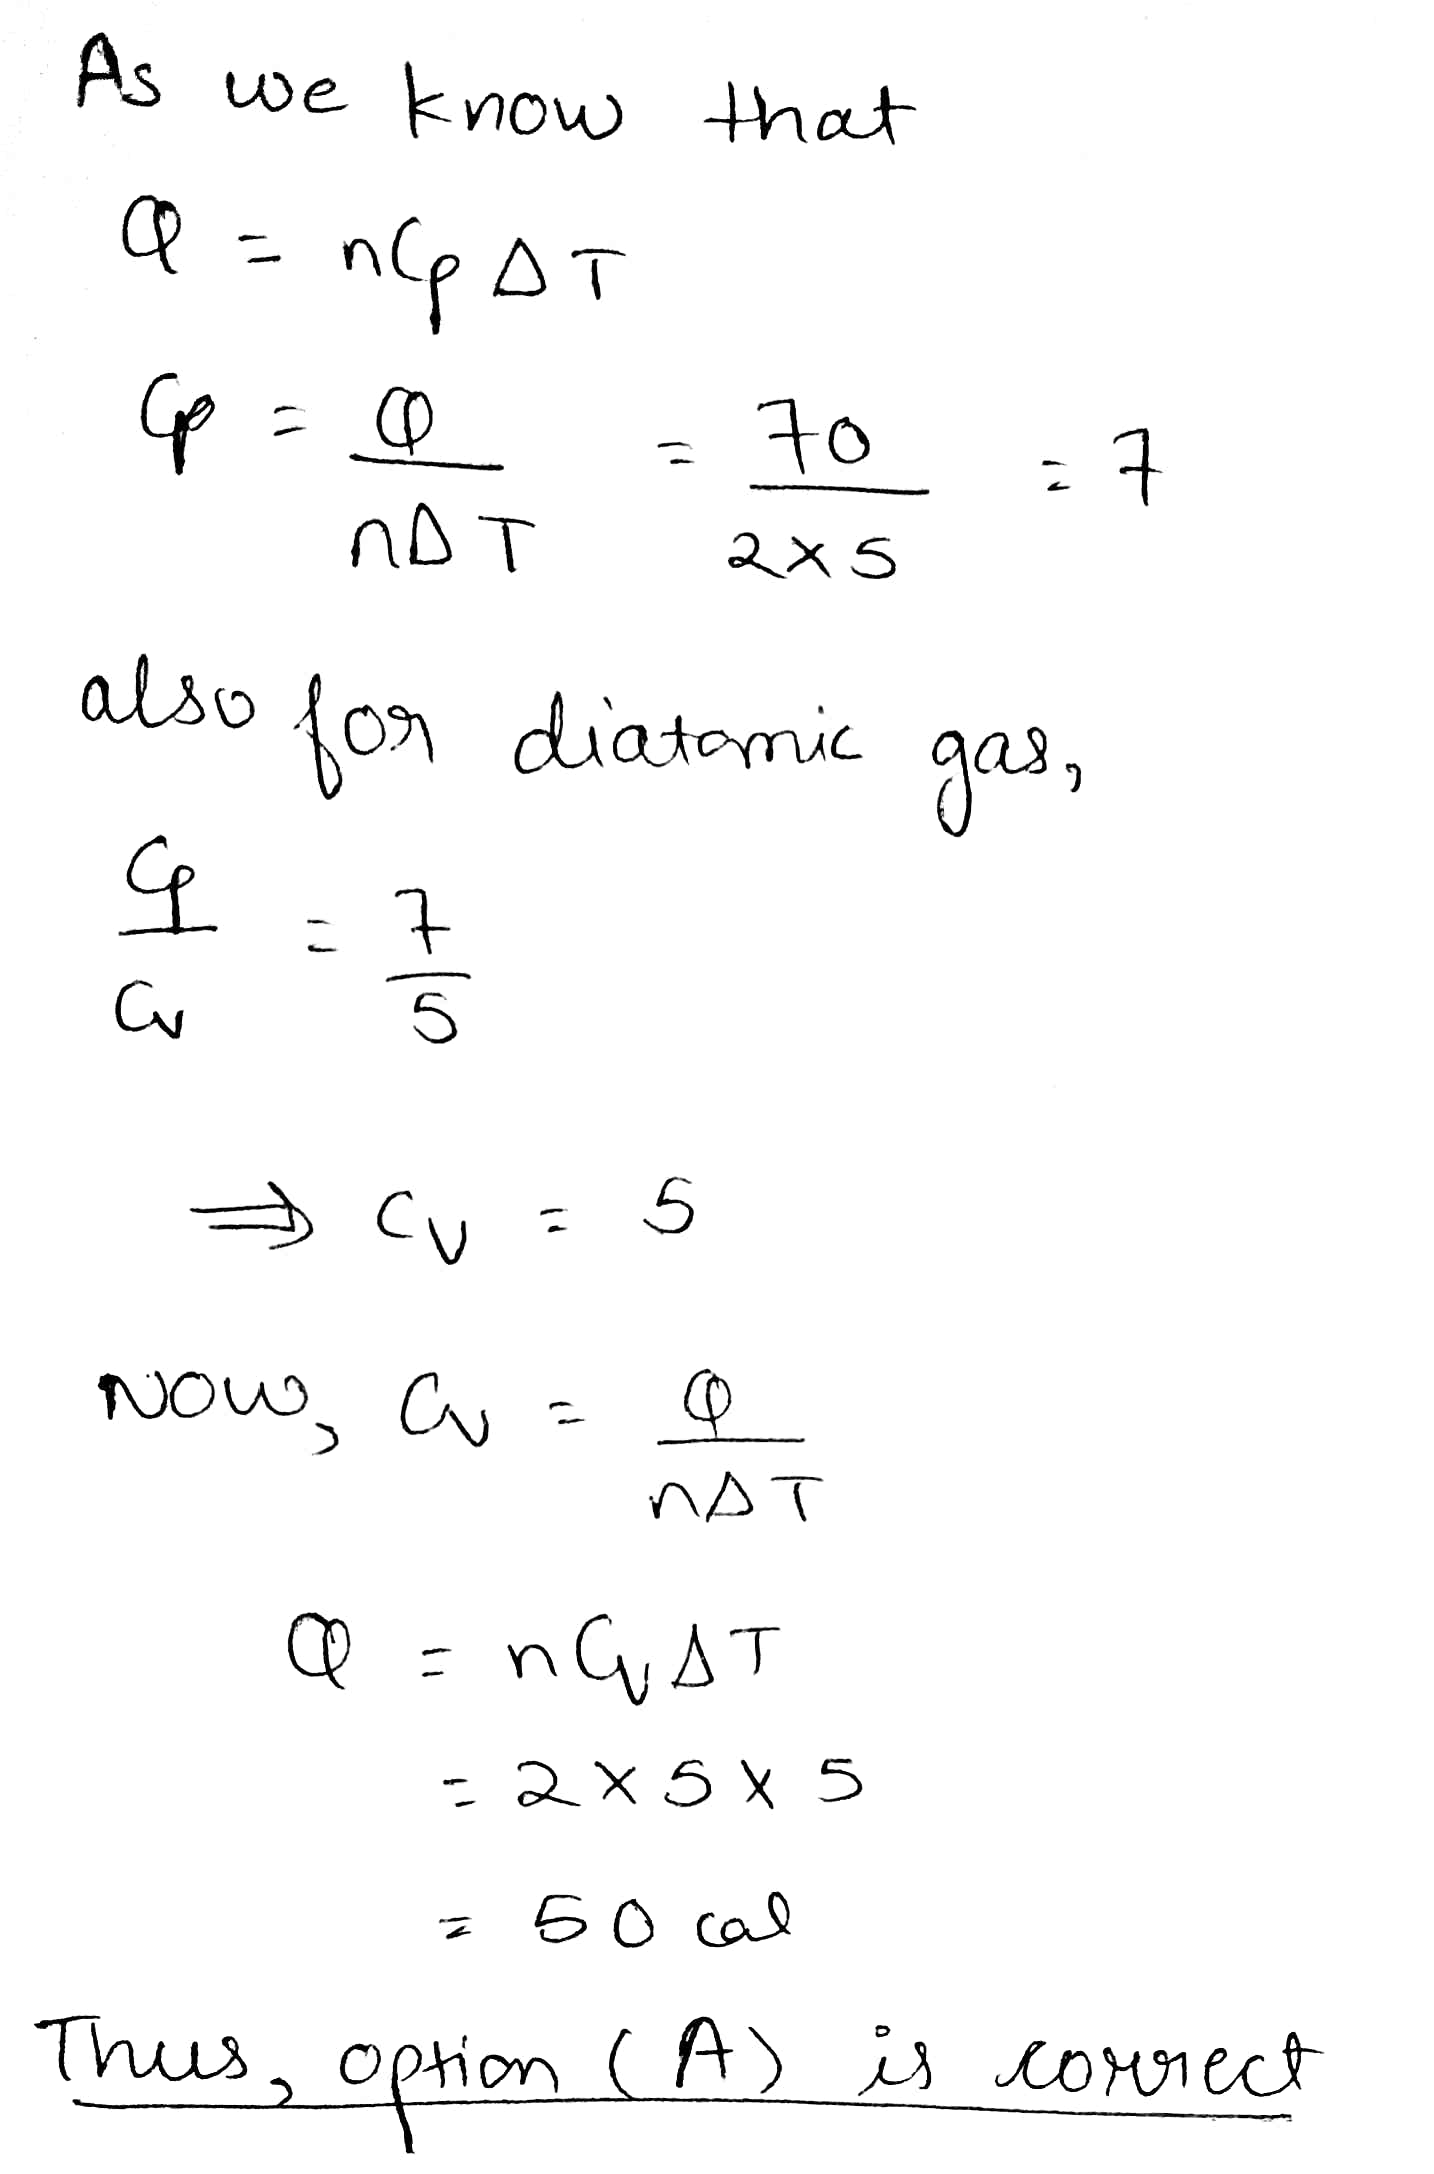 As we know that
Q = nCp ΔT
Cp = Q / nΔT = 70 / 2×5 = 7
also for diatomic gas,
Cp / Cv = 7 / 5
⇒ Cv = 5
Now, Cv = Q / nΔT
Q = nCv ΔT
= 2×5×5
= 50 cal
Thus, option (A) is correct